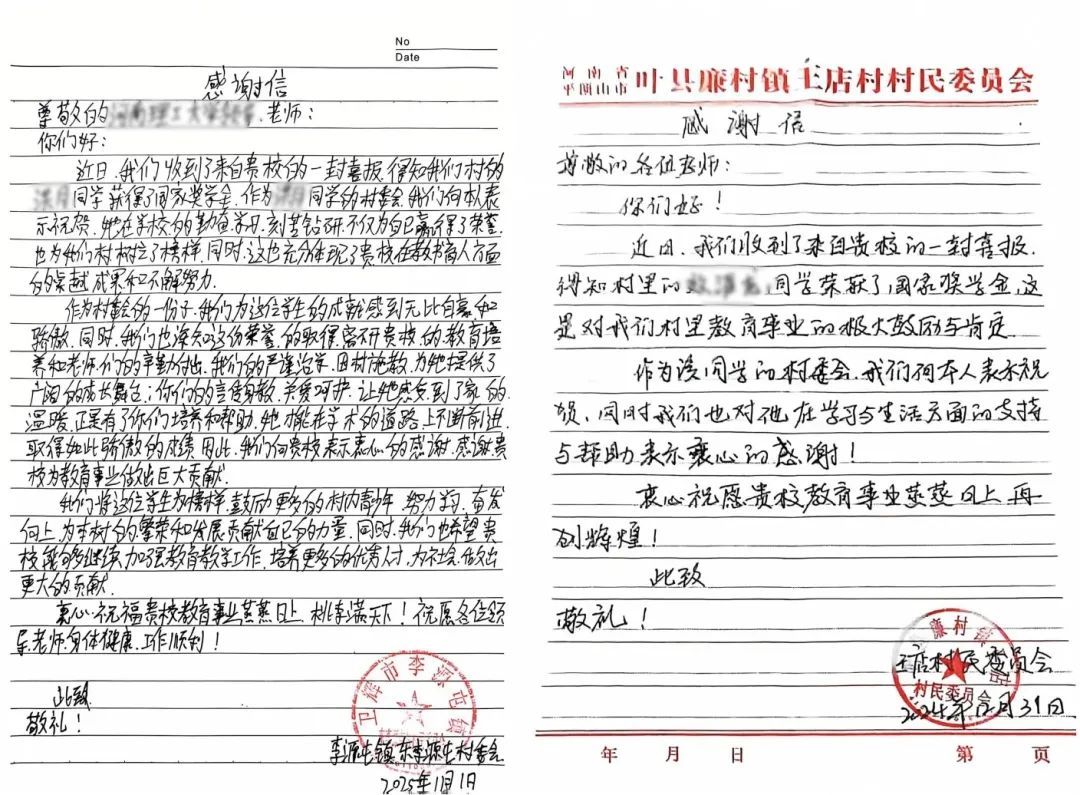 No
Date
感谢信
尊敬的 老师:
你们好:
近日,我们收到了来自贵校的一封喜报,得知我们村的
同学获得了国家奖学金,作为 同学的村委会,我们向本人表
示祝贺,她在学校的勤奋学习,刻苦钻研,不仅为自己赢得了荣誉,
也为我们村树立了榜样,同时,这也充分体现了贵校在教书育人方面
的卓越成果和不懈努力.
作为村委会的一份子,我们为这位学生的成就感到无比自豪和
骄傲,同时,我们也深知这份荣誉的取得离不开贵校的教育培
养和老师们的辛勤付出,我们的严谨治学,因材施教,为她提供了
广阔的成长舞台;你们的言传身教,关爱呵护,让她感受到了家的
温暖,正是有了你们培养和帮助,她才能在学术的道路上不断前进,
取得如此骄傲的成绩.因此,我们向贵校表示衷心的感谢,感谢贵
校为教育事业做出巨大贡献.
我们将这位学生为榜样,鼓励更多的村内青少年,努力学习,奋发
向上,为本村的繁荣和发展贡献自己的力量,同时,我们也希望贵
校能够继续加强教育教学工作,培养更多的优秀人才,为社会做出
更大的贡献.
衷心祝福贵校教育事业蒸蒸日上,桃李满天下!祝愿各位领
导、老师,身体健康,工作顺利!
此致
敬礼!
卫辉市李源屯镇
李源屯镇东李源屯村委会
2025年1月1号
河南省
平顶山市
叶县廉村镇王店村村民委员会
感谢信
尊敬的各位老师:
你们好!
近日,我们收到了来自贵校的一封喜报,
得知村里的 同学荣获了国家奖学金,这
是对我们村里教育事业的极大鼓励与肯定.
作为该同学的村委会,我们向本人表示祝
贺,同时我们也对他在学习与生活方面的支持
与帮助表示衷心的感谢!
衷心祝愿贵校教育事业蒸蒸日上再
创辉煌!
此致
敬礼!
廉村镇
王店村民委员会
村民委员会
2024年12月31日
年 月 日 第 页